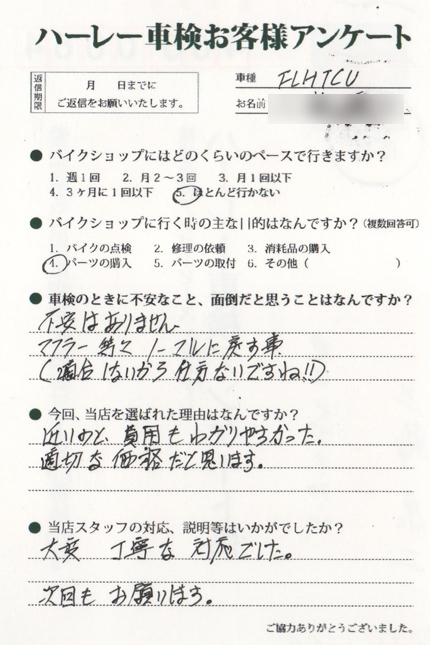 ハーレー車検お客様アンケート
返信期限
月 日までに
ご返信をお願いいたします。
車種 FLHTCU
お名前
● バイクショップにはどのくらいのペースで行きますか?
1. 週1回 2. 月2~3回 3. 月1回以下
4. 3ヶ月に1回以下 5. ほとんど行かない
● バイクショップに行く時の主な目的はなんですか?(複数回答可)
1. バイクの点検 2. 修理の依頼 3. 消耗品の購入
4. パーツの購入 5. パーツの取付 6. その他( )
● 車検のときに不安なこと、面倒だと思うことはなんですか?
不安はありません
マフラー等々 ノーマルに戻す事
(適合しないから仕方ないですね!!)
● 今回、当店を選ばれた理由はなんですか?
近いのと、費用もわかりやすかった。
適切な価格だと思います。
● 当店スタッフの対応、説明等はいかがでしたか?
大変 丁寧な対応でした。
次回も お願いします。
ご協力ありがとうございました。